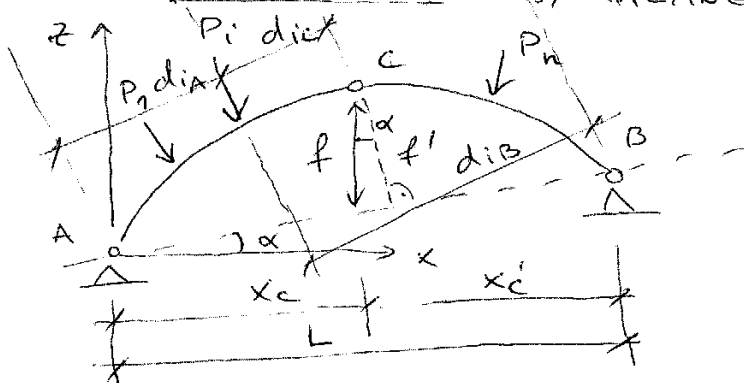 z
Pi diC
P1 diA
C
Pn
f
α
f'
diB
B
A
α
x
xc
xc'
L